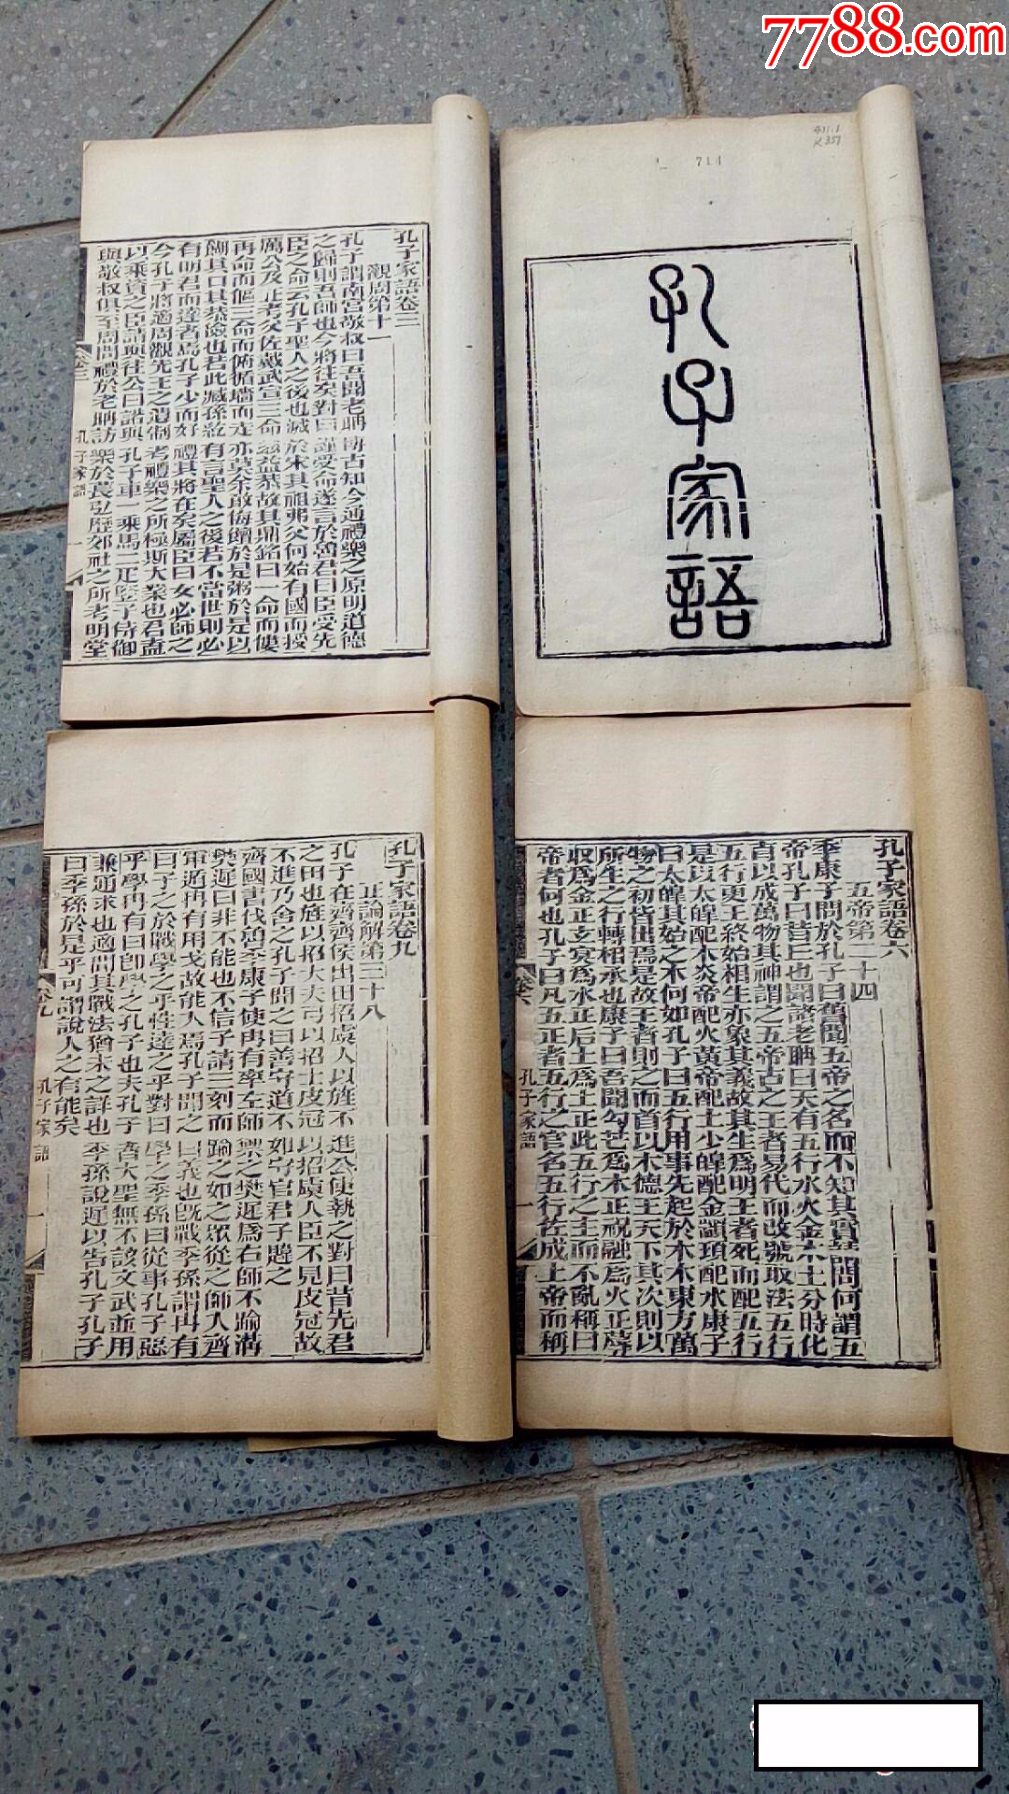 7788.com
411.1
K357
714
孔子家語
孔子家語卷三
觀周第十一
孔子謂南宮敬叔曰吾聞老聃博古知今通禮樂之原明道德
之歸則吾師也今將往矣對曰謹受命遂言於魯君曰臣受先
臣之命云孔子聖人之後也滅於宋其祖弗父何始有國而授
厲公及正考父佐戴武宣三命茲益恭故其鼎銘曰一命而僂
再命而傴三命而俯循墻而走亦莫余敢侮饘於是粥於是以
餬其口其恭儉也若此臧孫紇有言聖人之後若不當世則必
有明君而達者焉孔子少而好禮其將在矣屬臣曰女必師之
今孔子將適周觀先王之遺制考禮樂之所極斯大業也君盍
以乘資之臣請與往公曰諾與孔子車一乘馬二疋豎子侍御
與敬叔俱至周問禮於老聃訪樂於萇弘歷郊社之所考明堂
卷三
孔子家語
一
孔子家語卷六
五帝第二十四
季康子問於孔子曰舊聞五帝之名而不知其實請問何謂五
帝孔子曰昔巳也聞諸老聃曰天有五行水火金木土分時化
育以成萬物其神謂之五帝古之王者易代而改號取法五行
五行更王終始相生亦象其義故其生爲明王者死而配五行
是以太皥配木炎帝配火黃帝配土少皥配金顓頊配水康子
曰太皥其始之木何如孔子曰五行用事先起於木木東方萬
物之初皆出焉是故王者則之而首以木德王天下其次則以
所生之行轉相承也康子曰吾聞勾芒爲木正祝融爲火正蓐
收爲金正玄冥爲水正后土爲土正此五行之主而不亂稱曰
帝者何也孔子曰凡五正者五行之官名五行佐成上帝而稱
卷六
孔子家語
一
孔子家語卷九
正論解第三十八
孔子在齊齊侯出田招虞人以旌不進公使執之對曰昔先君
之田也旌以招大夫弓以招士皮冠以招虞人臣不見皮冠故
不進乃舍之孔子聞之曰善守道不如守官君子韙之
齊國書伐魯季康子使冉有率左師禦之樊遲爲右師不踰溝
樊遲曰非不能也不信子請三刻而踰之如之眾從之師入齊
軍遁冉有用戈故能入焉孔子聞之曰義也既戰季孫謂冉有
曰子之於戰學之乎性達之乎對曰學之季孫曰從事孔子惡
乎學冉有曰卽學之孔子也夫孔子者大聖無不該文武並用
兼通求也適聞其戰法猶未之詳也季孫說遲以告孔子孔子
曰季孫於是乎可謂說人之有能矣
卷九
孔子家語
一